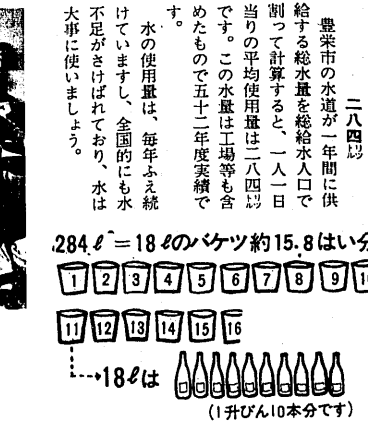 二八四㍑
豊栄市の水道が一年間に供
給する総水量を総給水人口で
割って計算すると、一人一日
当りの平均使用量は二八四㍑
です。この水量は工場等も含
めたもので五十二年度実績で
す。
水の使用量は、毎年ふえ続
けていますし、全国的にも水
不足がさけばれており、水は
大事に使いましょう。
284ℓ=18ℓのバケツ約15.8はい分
1 2 3 4 5 6 7 8 9 10
11 12 13 14 15 16
18ℓは
(1升びん10本分です)